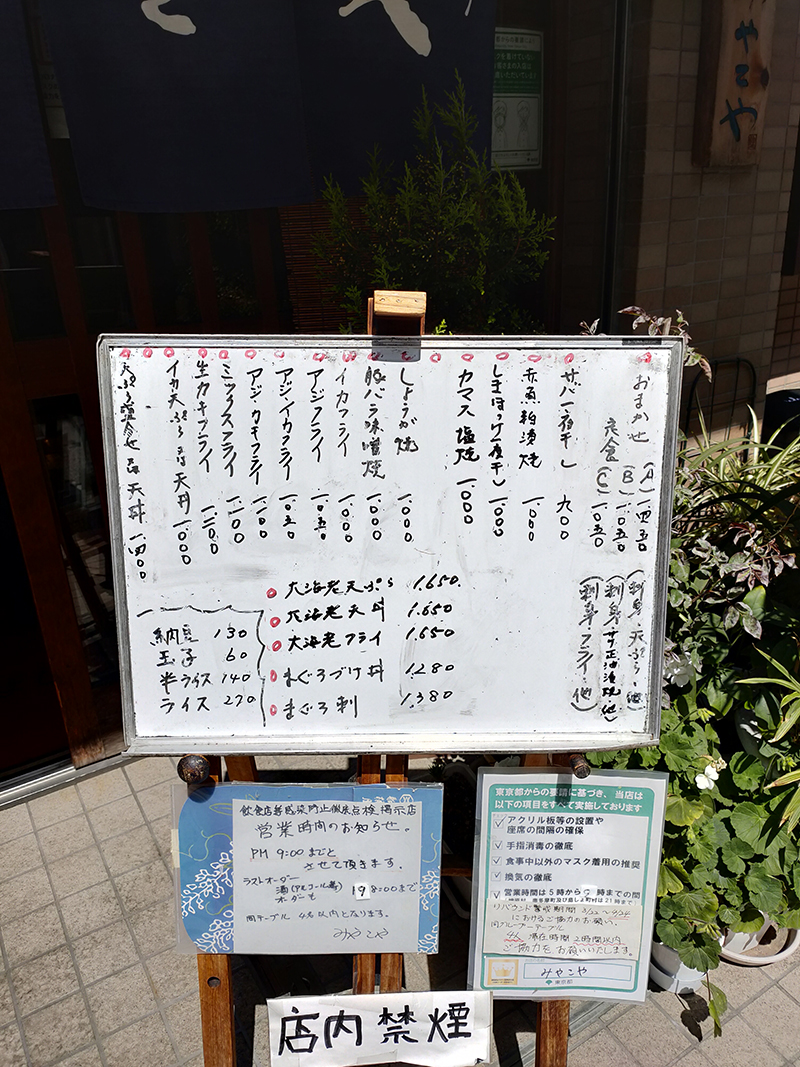 みやこや
おまかせ
定食
(A) 一四五〇
(B) 一、〇五〇
(C) 一、〇五〇
(刺身・天ぷら・他)
(刺身・サケ正油漬焼(他)
(刺身・フライ・他)
サバ一夜干し 九〇〇
赤魚粕漬焼 一、〇〇〇
しまほっけ一夜干し 一、〇〇〇
カマス塩焼 一、〇〇〇
しょうが焼 一、〇〇〇
豚バラ味噌焼 一、〇〇〇
イカフライ 一、〇〇〇
アジフライ 一、〇五〇
アジ・イカフライ 一、〇五〇
アジ・カキフライ 一、一〇〇
ミックスフライ 一、一〇〇
生カキフライ 一、二〇〇
イカ天ぷら又は天丼 一、〇〇〇
天ぷら盛合せ 又は 天丼 一、四〇〇
大海老天ぷら 1.650
大海老天丼 1.650
大海老フライ 1.650
まぐろづけ丼 1.280
まぐろ刺 1.380
納豆 130
玉子 60
半ライス 140
ライス 270
飲食店等感染防止徹底点検掲示店
営業時間のお知らせ。
PM 9:00までと
させて頂きます。
ラストオーダー
酒(アルコール類)
オーダーも
8:00まで
同テーブル 4名以内となります。
みやこや
東京都からの要請に基づき、当店は
以下の項目をすべて実施しております
アクリル板等の設置や
座席の間隔の確保
手指消毒の徹底
食事中以外のマスク着用の推奨
換気の徹底
営業時間は5時から9時までの間
リバウンド警戒期間 3/22〜4/24
におけるご協力のお願い。
同グループ・テーブル
4人 滞在時間 2時間以内
ご協力をお願いいたします。
みやこや
東京都
店内禁煙